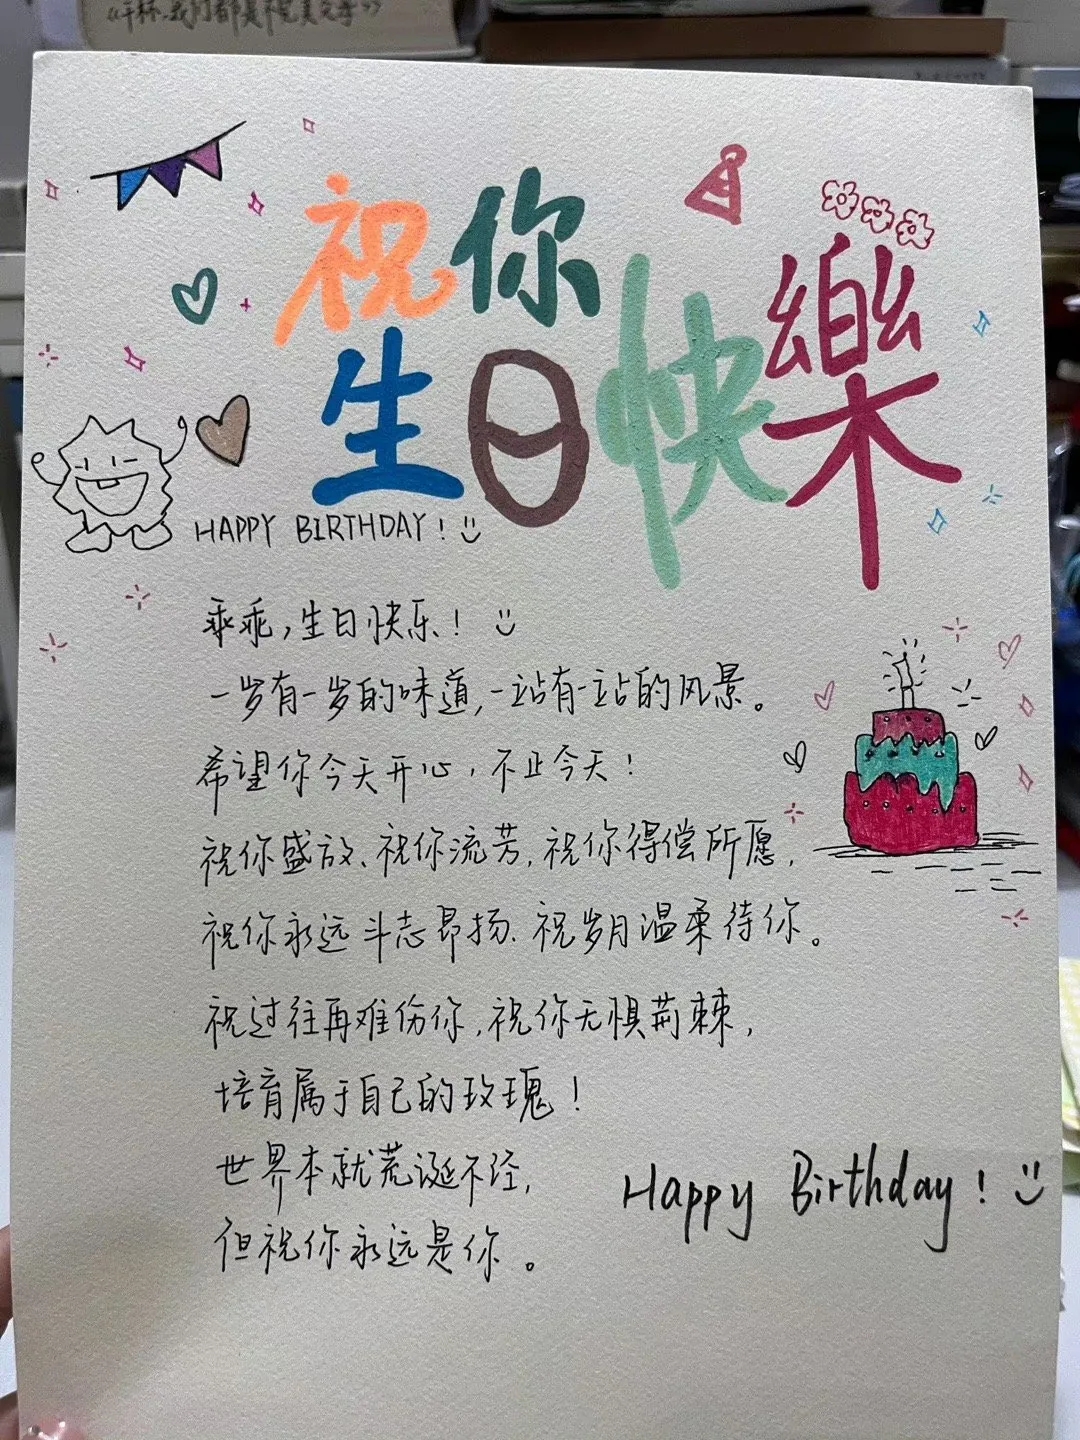 祝你
生日快樂
HAPPY BIRTHDAY！
乖乖,生日快乐！
一岁有一岁的味道,一站有一站的风景。
希望你今天开心,不止今天！
祝你盛放、祝你流芳,祝你得偿所愿,
祝你永远斗志昂扬、祝岁月温柔待你。
祝过往再难伤你,祝你无惧荆棘,
培育属于自己的玫瑰！
世界本就荒诞不经,
但祝你永远是你。
Happy Birthday！